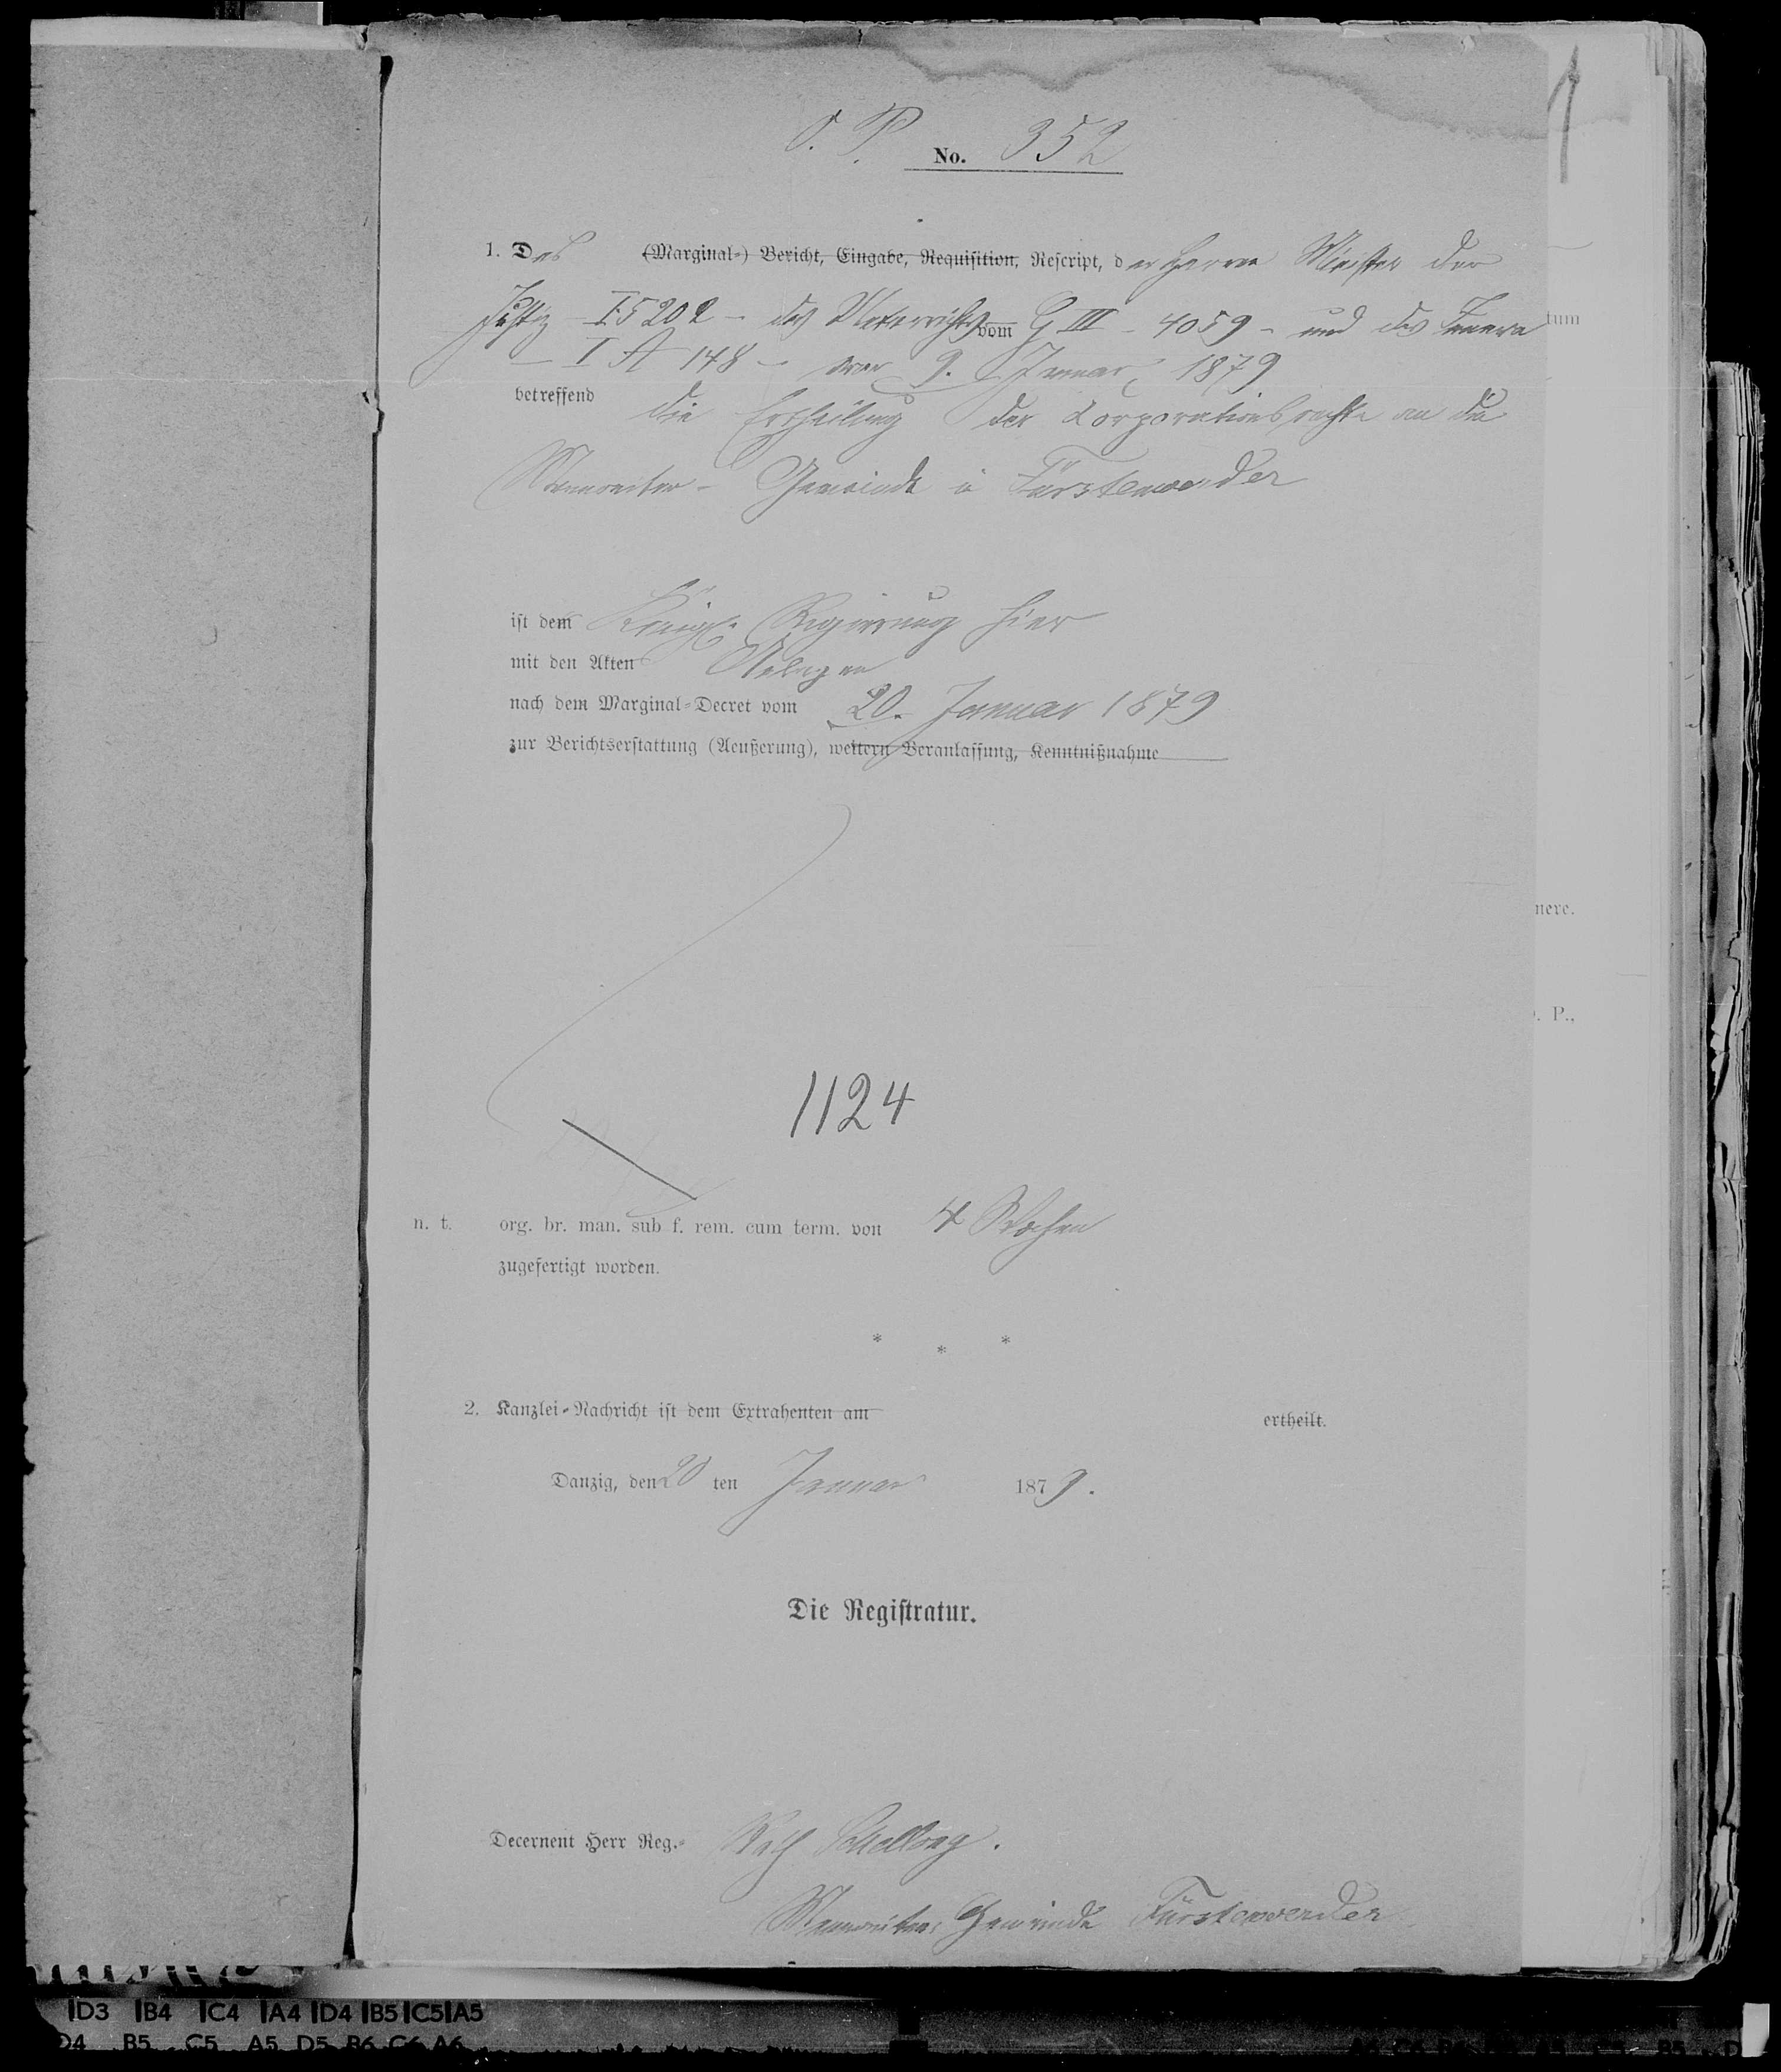 1
O. P. No. 352
1. Das (Marginal-) Bericht, Eingabe, Requisition, Rescript, der Herren Minister der
Justiz – I 5202 – des Unterrichts vom G III – 4059 – und des Innern
tum
– I A 148 – vom 9. Januar 1879
betreffend die Ertheilung der Korporationsrechte an die
Mennoniten-Gemeinde in Fürstenwerder
ist dem Königl. Regierung hier
mit den Akten Anlagen
nach dem Marginal-Decret vom 20. Januar 1879
zur Berichtserstattung (Aeußerung), weitern Veranlassung, Kenntnißnahme
nere.
. P.,
1124
n. t. org. br. man. sub f. rem. cum term. von 4 Wochen
zugefertigt worden.
* * *
2. Kanzlei-Nachricht ist dem Extrahenten am ertheilt.
Danzig, den 20 ten Januar 1879.
Die Registratur.
Decernent Herr Reg.- Rath
Mennoniten Gemeinde Fürstenwerder
D3 B4 C4 A4 D4 B5 C5 A5
D4 B5 C5 A5 D5 B6 C6 A6